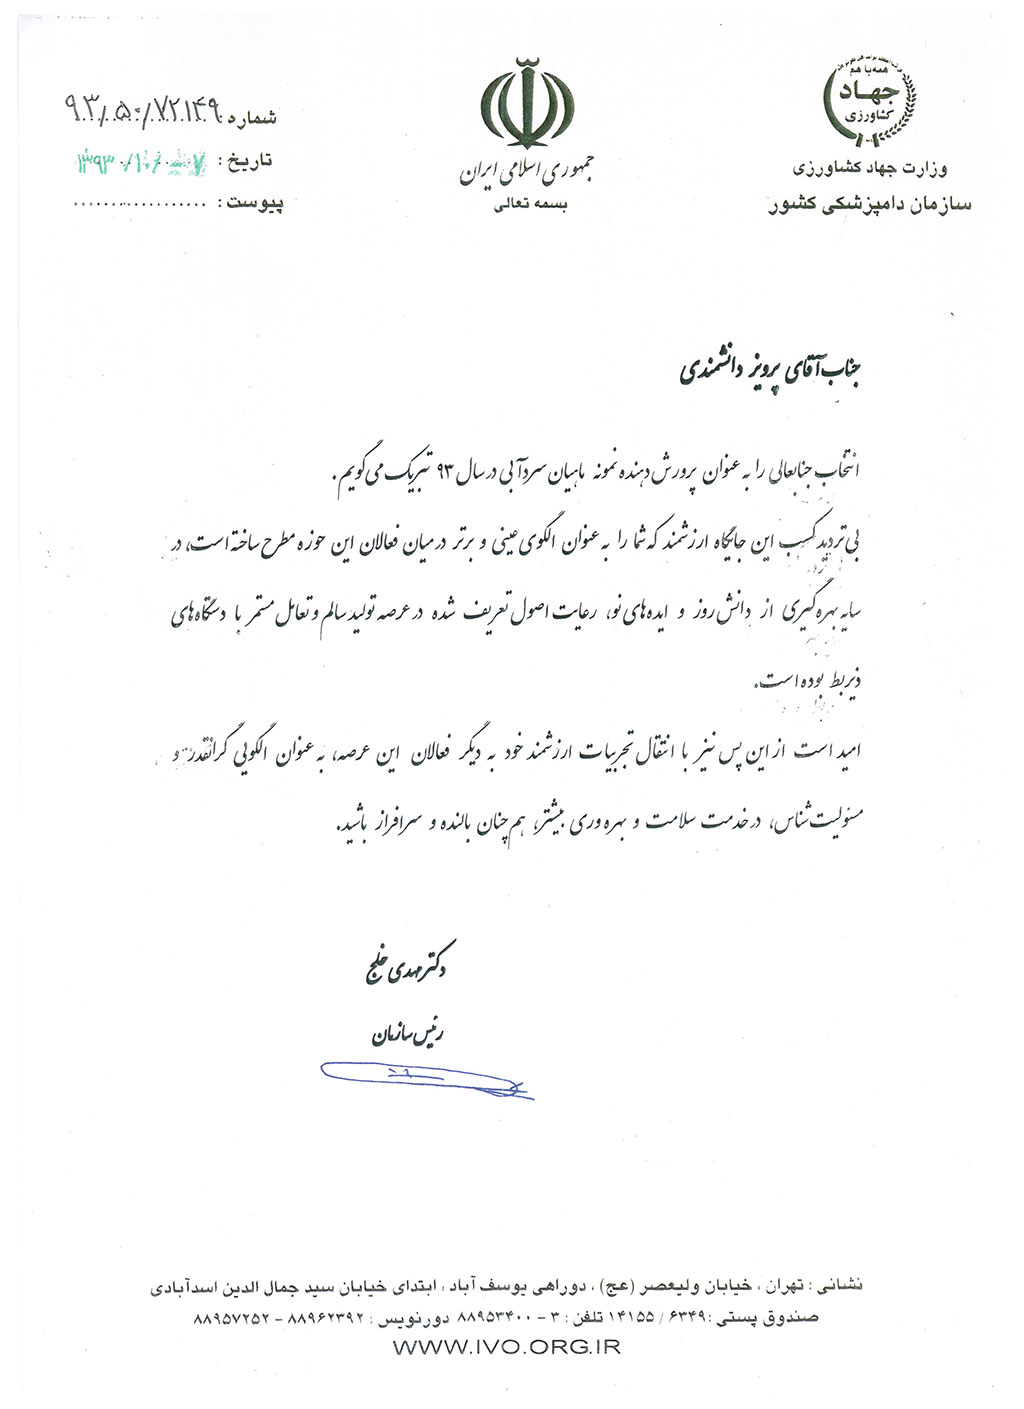 همه با هم
جهاد
کشاورزی
وزارت جهاد کشاورزی
سازمان دامپزشکی کشور
جمهوری اسلامی ایران
بسمه تعالی
شماره ۹۳/۵۰/۷۲۱۴۹
تاریخ : ۱۳۹۳/۱۰/۰۷
پیوست : ....................
جناب آقای پرویز دانشمندی
انتخاب جنابعالی را به عنوان پرورش دهنده نمونه ماهیان سردآبی در سال ۹۳ تبریک می گویم.
بی تردید کسب این جایگاه ارزشمند که شما را به عنوان الگوی عینی و برتر در میان فعالان این حوزه مطرح ساخته است، در
سایه بهره گیری از دانش روز و ایده های نو، رعایت اصول تعریف شده در عرصه تولید سالم و تعامل مستمر با دستگاه های
ذیربط بوده است.
امید است از این پس نیز با انتقال تجربیات ارزشمند خود به دیگر فعالان این عرصه، به عنوان الگویی گرانقدر و
مسئولیت شناس، در خدمت سلامت و بهره وری بیشتر، هم چنان بالنده و سرافراز باشید.
دکتر مهدی خلج
رئیس سازمان
نشانی : تهران ، خیابان ولیعصر (عج) ، دوراهی یوسف آباد ، ابتدای خیابان سید جمال الدین اسدآبادی
صندوق پستی :۶۳۴۹ / ۱۴۱۵۵ تلفن : ۳ - ۸۸۹۵۳۴۰۰ دورنویس : ۸۸۹۶۲۳۹۲ - ۸۸۹۵۷۲۵۲
WWW.IVO.ORG.IR